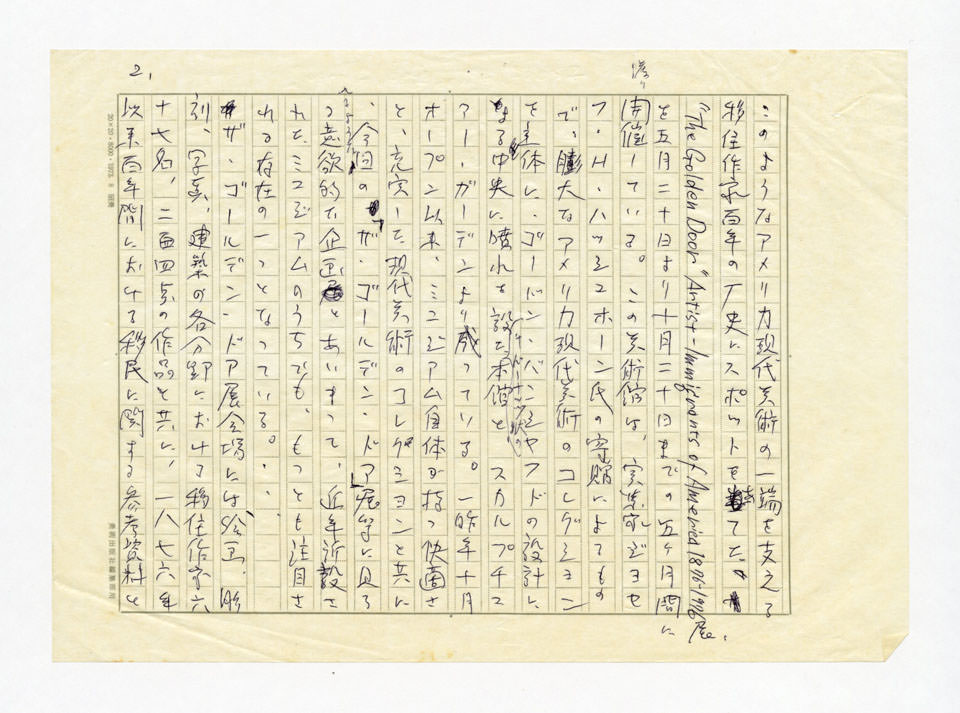 2.
このようなアメリカ現代美術の一端を支える
移住作家百年の歴史にスポットを当てた
"The Golden Door" Artist-Immigrants of America 1876-1976展、
を五月二十日より十月二十日までの五ヶ月間に
渡り
開催している。この美術館は、実業家ジョセ
フ・H・ハッシュホーン氏の寄贈によるもの
で、膨大なアメリカ現代美術のコレクション
を主体に、ゴードン・バンシャフトの設計に
なる中央に噴水を設けたドーナツ状の本館と、スカルプチュ
アー・ガーデンより成っている。一昨年十月
オープン以来、ミュージアム自体が持つ快適さ
と、充実した現代美術のコレクションと共に
、今回のザ・ゴールデン・ドア展等に見ら
れるような
つ意欲的な企画とあいまって、近年新設さ
れたミュージアムのうちでも、もっとも注目さ
れる存在の一つとなっている。
ザ・ゴールデンドア展会場には絵画、彫
刻、写真、建築の各分野における移住作家六
十七名、二百四点の作品と共に、一八七六年
以来百年間における移民に関する参考資料と
20×20・